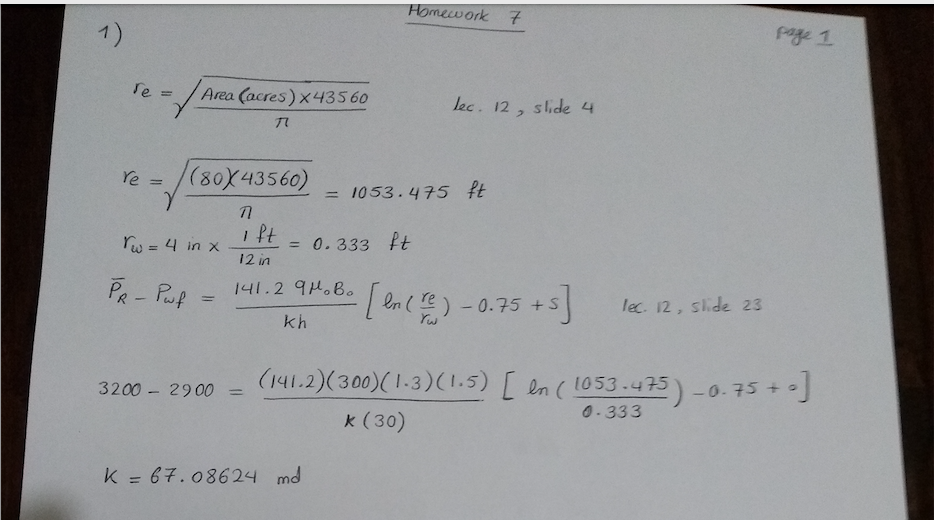 Homework 7
1)
page 1
re = √(Area (acres) × 43560 / π)
lec. 12, slide 4
re = √((80)(43560) / π) = 1053.475 ft
rw = 4 in x 1 ft / 12 in = 0.333 ft
P̄R - Pwf = 141.2 q μo Bo / kh [ ln ( re / rw ) - 0.75 + s ]
lec. 12, slide 23
3200 - 2900 = (141.2)(300)(1.3)(1.5) / k (30) [ ln ( 1053.475 / 0.333 ) - 0.75 + 0 ]
K = 67.08624 md